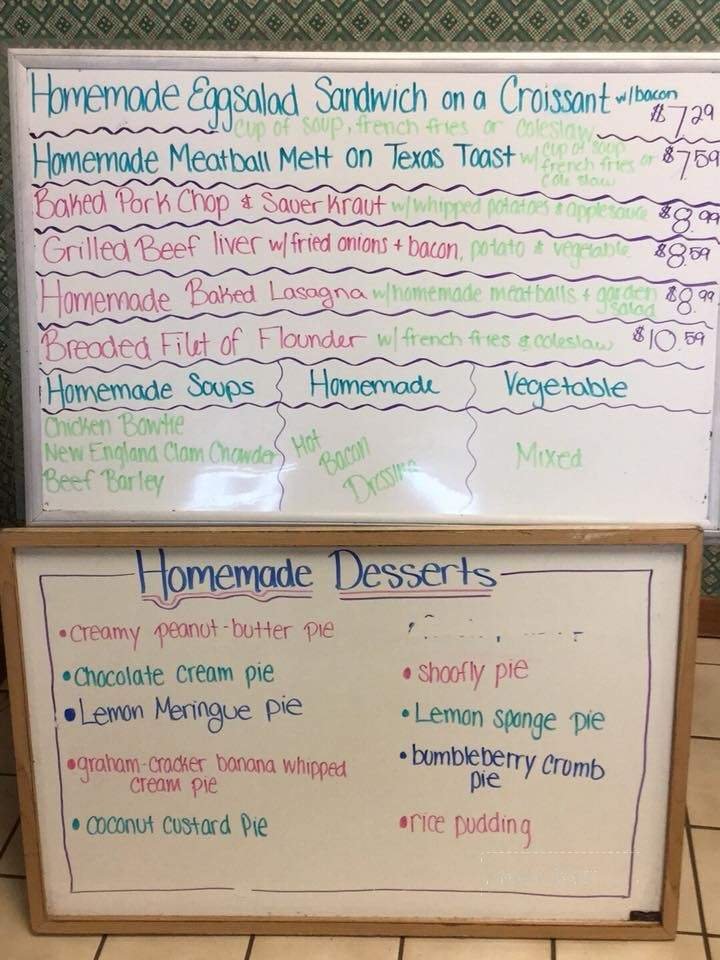 Homemade Eggsalad Sandwich on a Croissant w/bacon $7.29
cup of soup, french fries or coleslaw
Homemade Meatball Melt on Texas Toast w/ cup of soup $7.59
french fries or
cole slaw
Baked Pork Chop & Sauer Kraut w/whipped potatoes & applesauce $8.99
Grilled Beef liver w/fried onions + bacon, potato & vegetable $8.59
Homemade Baked Lasagna w/homemade meatballs + garden $8.99
salad
Breaded Filet of Flounder w/french fries & coleslaw $10.59
Homemade Soups
Chicken Bowtie
New England Clam Chowder
Beef Barley
Homemade
Hot
Bacon
Dressing
Vegetable
Mixed
Homemade Desserts
•creamy peanut-butter pie
•Chocolate cream pie
•Lemon Meringue pie
•graham-cracker banana whipped
cream pie
•coconut custard Pie
•shoofly pie
•Lemon sponge pie
•bumbleberry cromb
pie
•rice pudding